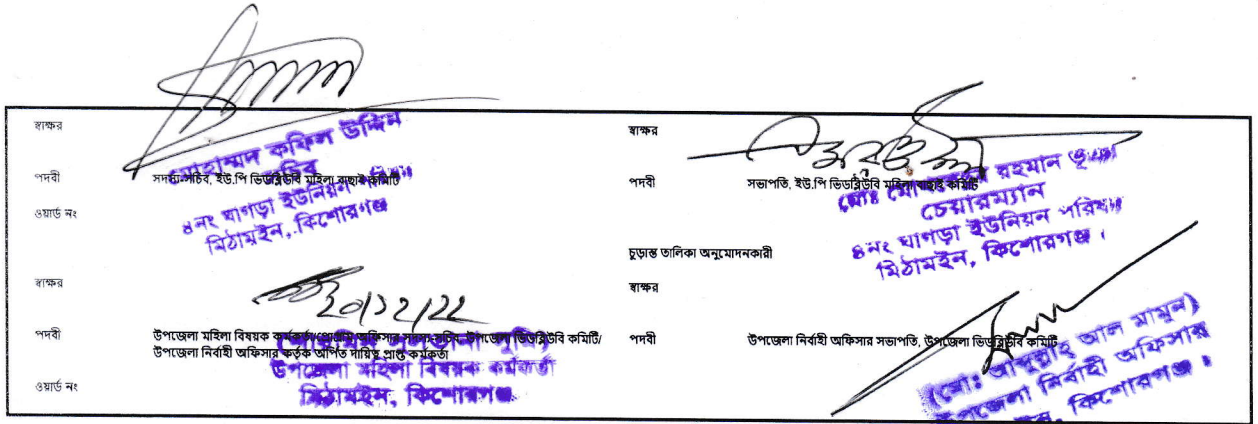 স্বাক্ষর
মোহাম্মদ কফিল উদ্দিন
সচিব
পদবী
সদস্য-সচিব, ইউ.পি ভিডব্লিউবি মহিলা বাছাই কমিটি
৪নং ঘাগড়া ইউনিয়ন
মিঠামইন, কিশোরগঞ্জ
ওয়ার্ড নং
স্বাক্ষর
পদবী
সভাপতি, ইউ.পি ভিডব্লিউবি মহিলা বাছাই কমিটি
মোঃ রহমান ভূঞা
চেয়ারম্যান
৪নং ঘাগড়া ইউনিয়ন পরিষদ
মিঠামইন, কিশোরগঞ্জ।
চূড়ান্ত তালিকা অনুমোদনকারী
স্বাক্ষর
২০/১২/২২
পদবী
উপজেলা মহিলা বিষয়ক কর্মকর্তা/প্রোগ্রাম অফিসার সদস্য সচিব, উপজেলা ভিডব্লিউবি কমিটি/
উপজেলা নির্বাহী অফিসার কর্তৃক অর্পিত দায়িত্ব প্রাপ্ত কর্মকর্তা
উপজেলা মহিলা বিষয়ক কর্মকর্তা
মিঠামইন, কিশোরগঞ্জ
ওয়ার্ড নং
স্বাক্ষর
পদবী
উপজেলা নির্বাহী অফিসার সভাপতি, উপজেলা ভিডব্লিউবি কমিটি
(মোঃ আব্দুল্লাহ আল মামুন)
উপজেলা নির্বাহী অফিসার
কিশোরগঞ্জ।